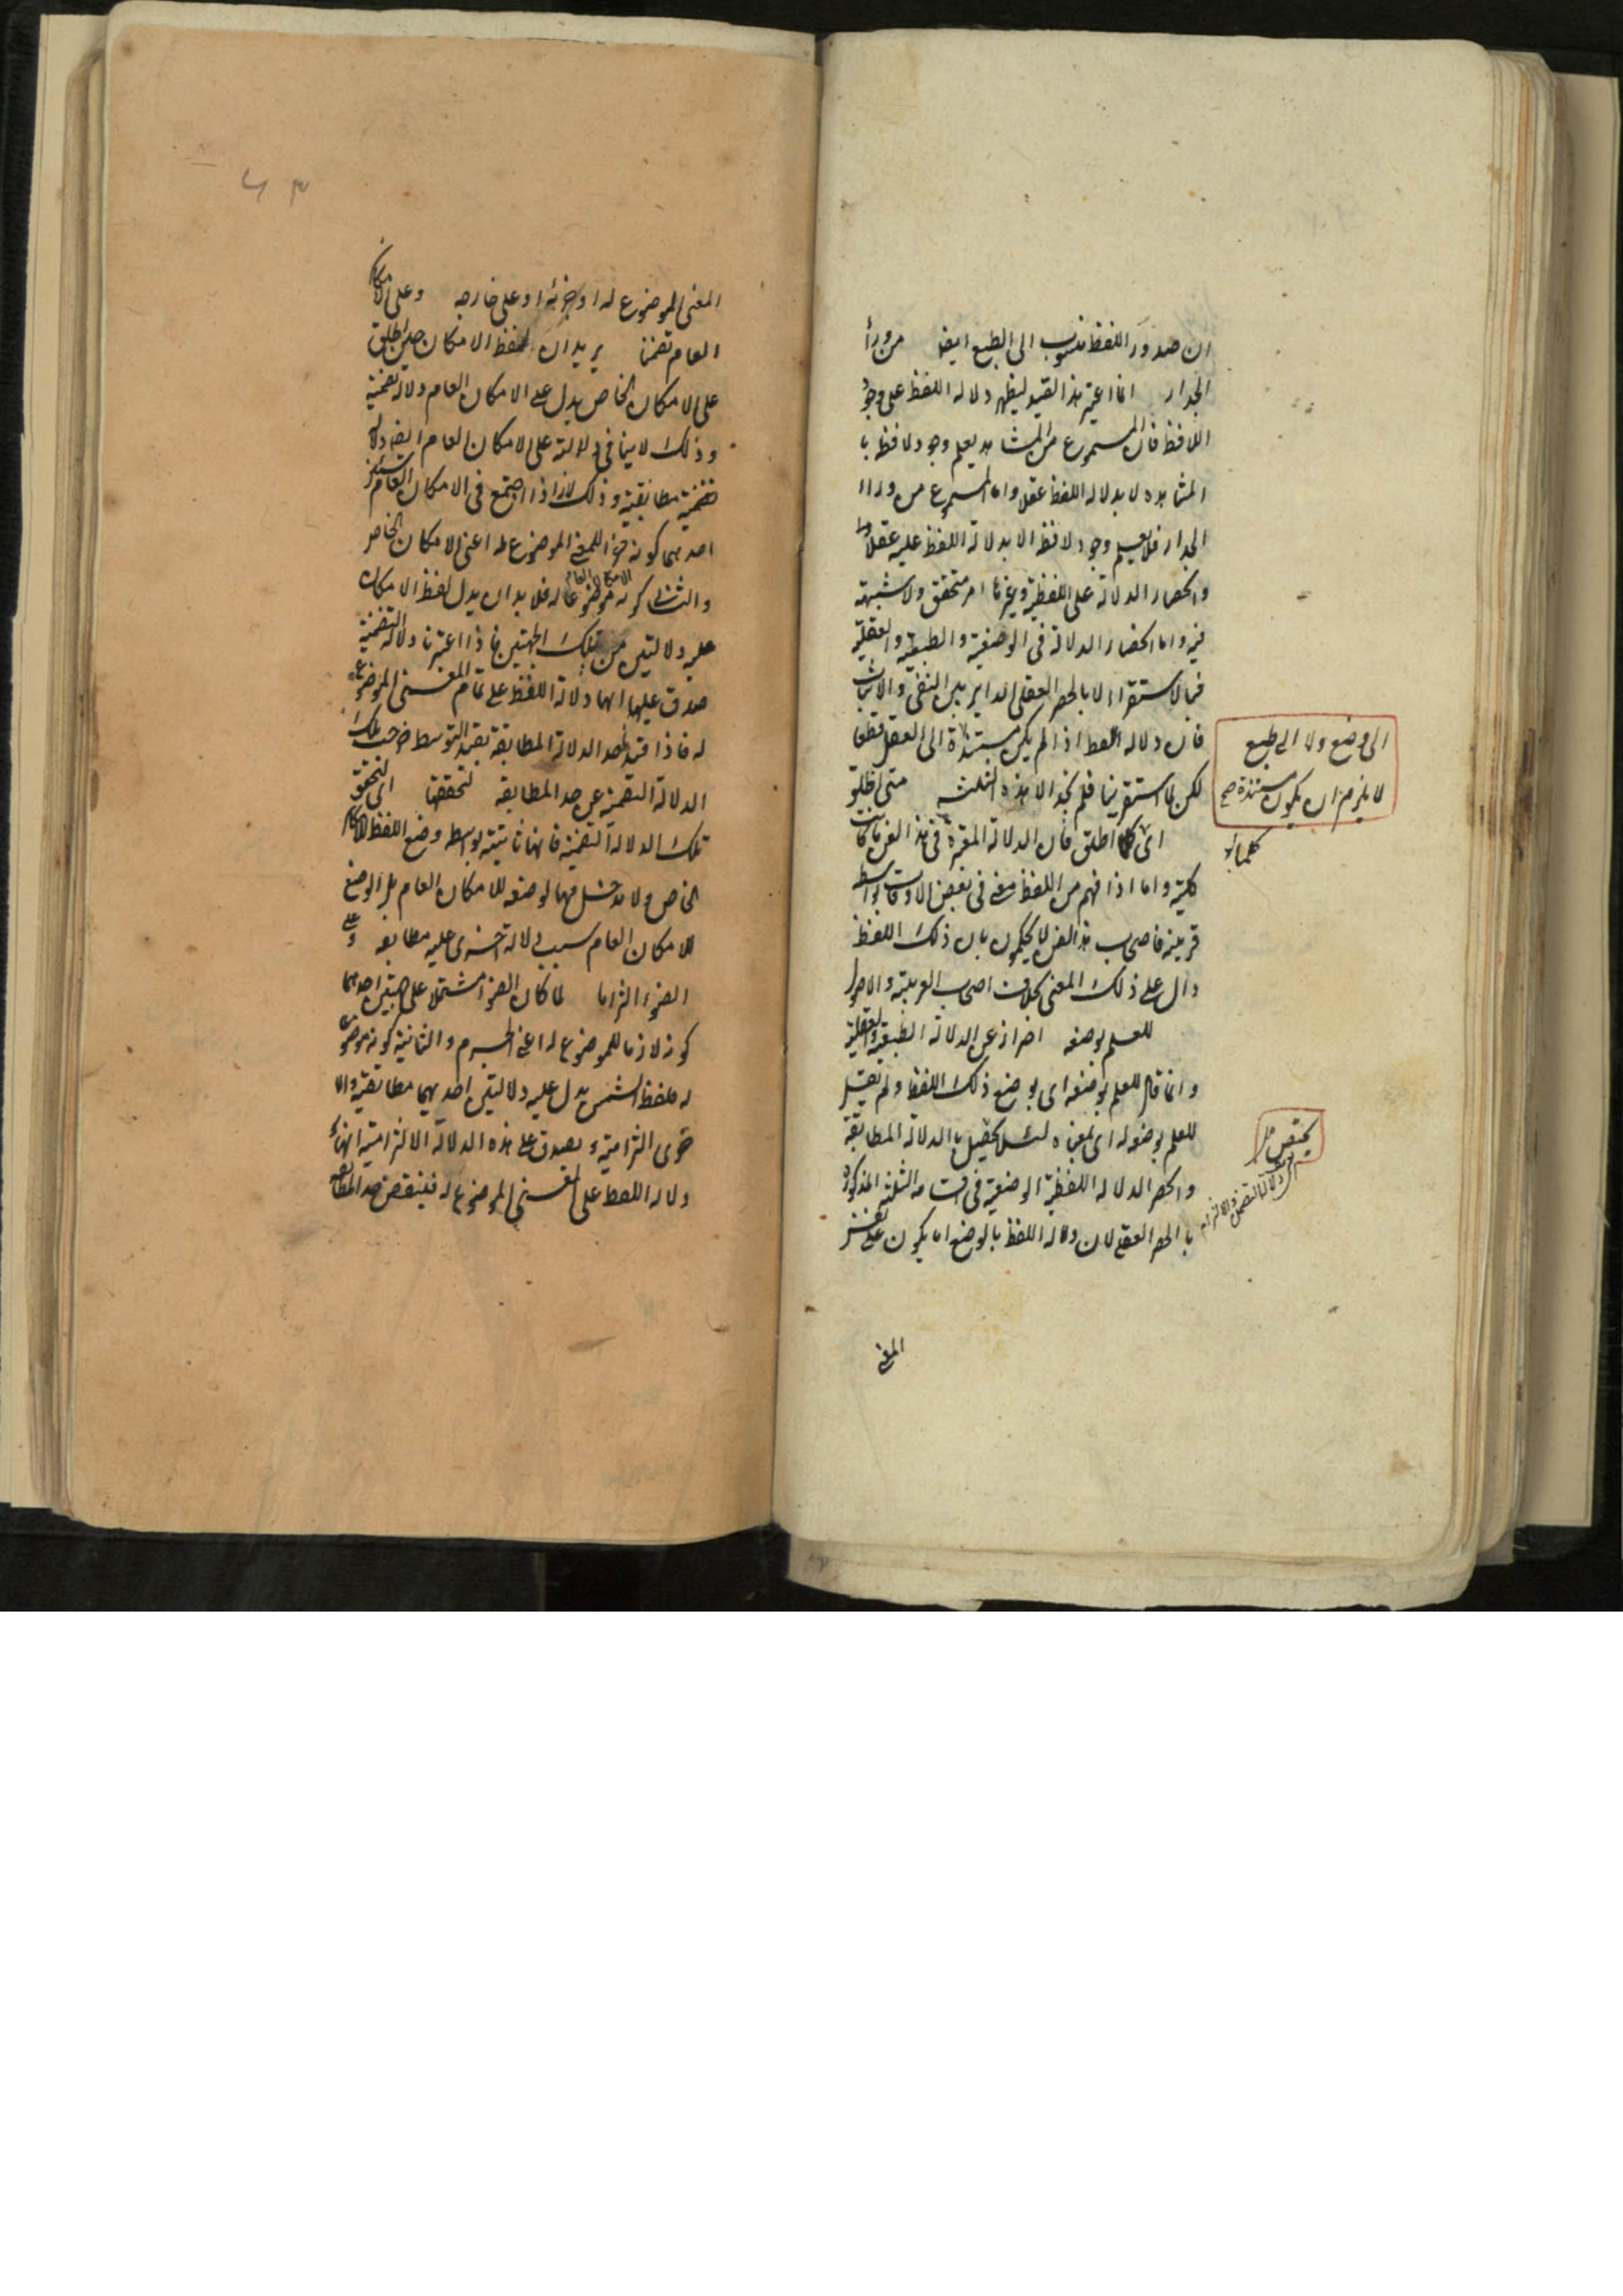 ان صدور اللفظ منسوب الى الطبع ايضا من وراء
الجدار انما اعتبر هذا القيد ليظهر دلالة اللفظ على وجود
اللافظ فان المسموع من المشاهد يعلم وجود لافظه با
المشاهده لا بدلالة اللفظ عقلا واما المسموع من وراء
الجدار فلا يعلم وجود لافظه الا بدلالة اللفظ عليه عقلا
وانحصار الدلالة على اللفظية وغيرها امر متحقق ولا شبهة
فيه واما انحصار الدلالة فى الوضعية والطبعية والعقلية
فبالاستقراء لا بالحصر العقلى الداير بين النفى والاثبات
فان دلالة اللفظ اذا لم يكن مستندة الى العقل قطعا
الى وضع ولا الى طبع
لا يلزم ان يكون مستندة صح
لكن لما استقرينا فلم نجد الا هذه الثلثه متى اطلق
اى كلما اطلق فان الدلالة المعتبرة فى هذا الفن ما كانت
كلية واما اذا فهم من اللفظ معنى فى بعض الاوقات بواسطة
قرينة فاصحاب هذا الفن لا يحكمون بان ذلك اللفظ
دال على ذلك المعنى بخلاف اصحاب العربية والاصول
للعلم بوضعه احتراز عن الدلالة الطبيعية والعقلية
وانما قال للعلم بوضعه اى بوضع ذلك اللفظ ولم يقل
للعلم بوضعه له اى لمعناه لئلا يختص بالدلالة المطابقة
وانحصر الدلالة اللفظية الوضعية فى اقسامه الثلثة المذكورة
بالحصر العقلى لان دلالة اللفظ بالوضع اما يكون على نفس
المعنى
المعنى الموضوع له او جزئه او على خارجه وعلى الامكان
العام تضمنا يريد ان لفظ الامكان حين اطلق
على الامكان الخاص يدل على الامكان العام دلالة تضمنية
وذلك لا ينافى دلالته على الامكان العام ايضا دلالة
مطابقية وذلك لانه اذا اجتمع فى الامكان العام
احدهما كونه جزءا للمعنى الموضوع له اعنى الامكان الخاص
والثانى كونه موضوعا له فلا بد ان يدل لفظ الامكان
عليه دلالتين من تلك الجهتين فاذا اعتبرنا دلالة التضمنية
صدق عليها انها دلالة اللفظ على تمام المعنى الموضوع
له فاذا قيد حد الدلالة المطابقة بقيد التوسط خرجت تلك
الدلالة التضمنية عن حد المطابقة لتحققها اى لتحقق
تلك الدلالة التضمنية فانها ثابتة بواسطة وضع اللفظ للامكان
الخاص ولا مدخل فيها لوضعه للامكان العام بل الوضع
للامكان العام سبب لدلالة اخرى عليه مطابقة وعلى
الضوء التزاما لما كان الضوء مشتملا على جهتين احدهما
كونه لازما للموضوع له اعنى الجرم والثانية كونه موضوعا
له فلفظ الشمس يدل عليه دلالتين احديهما مطابقية والا
خرى التزامية ويصدق على هذه الدلالة الالتزامية انها
دلالة اللفظ على المعنى الموضوع له فينتقض حد المطابقة